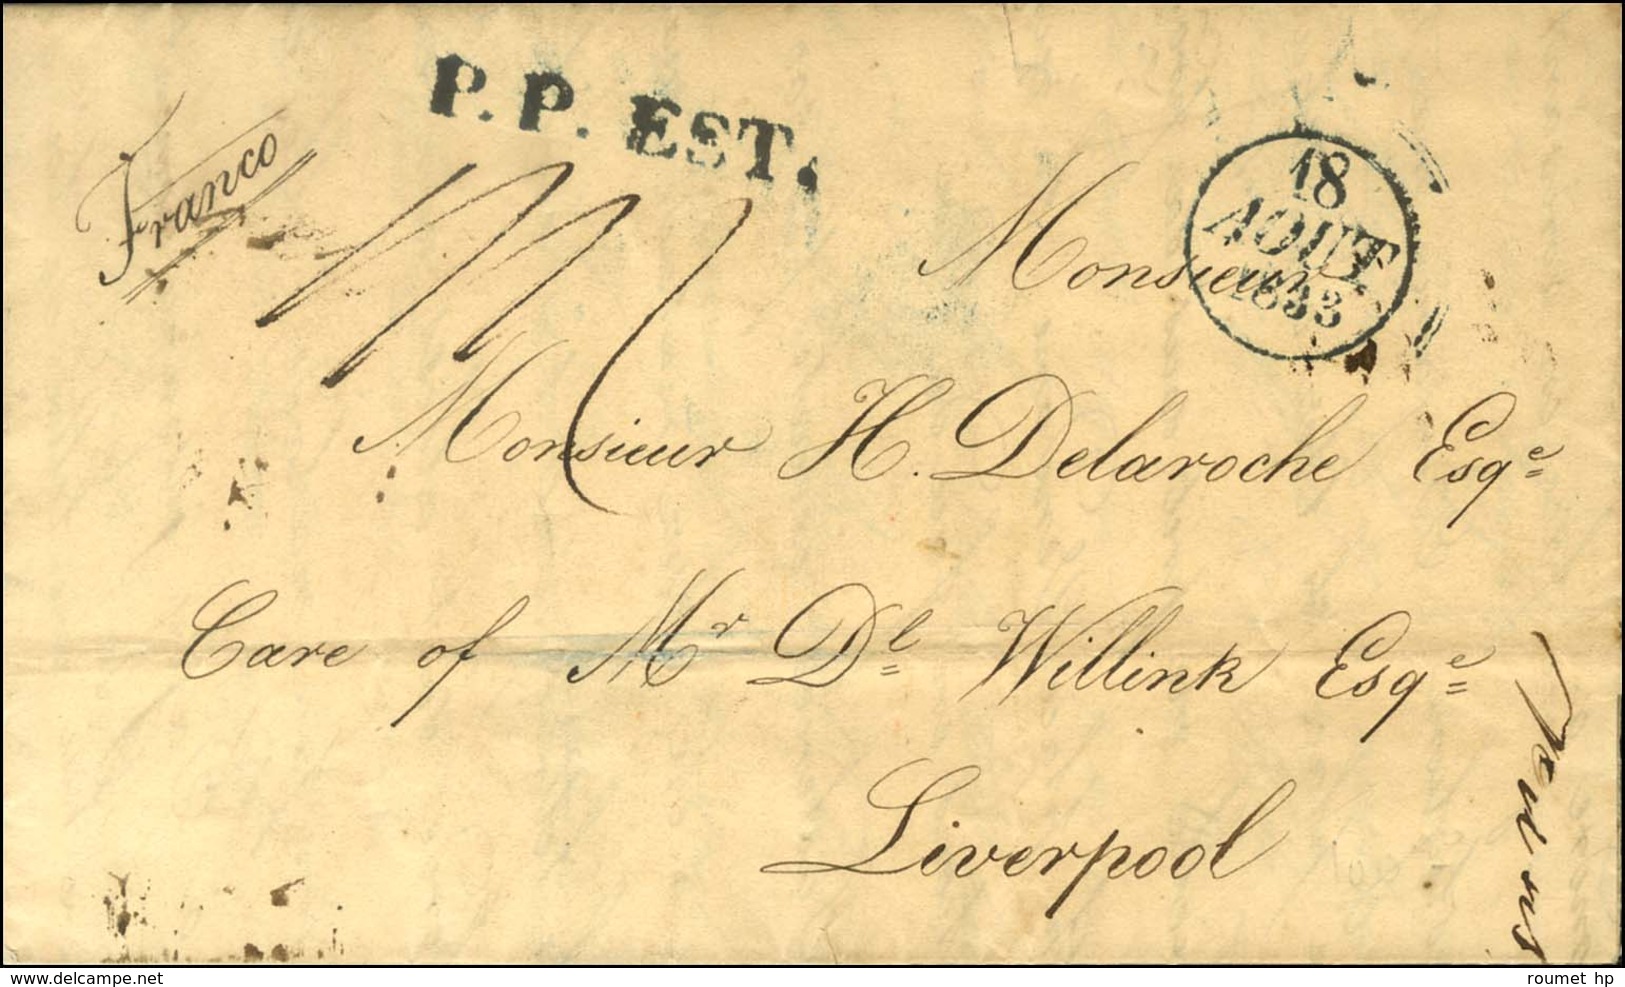 P. P. EST.
Franco
18
AOUT
1833
Monsieur
Monsieur H. Delaroche Esqe
Care of Mr Dl Willink Esqe
Liverpool
www.delcampe.net
roumet hp